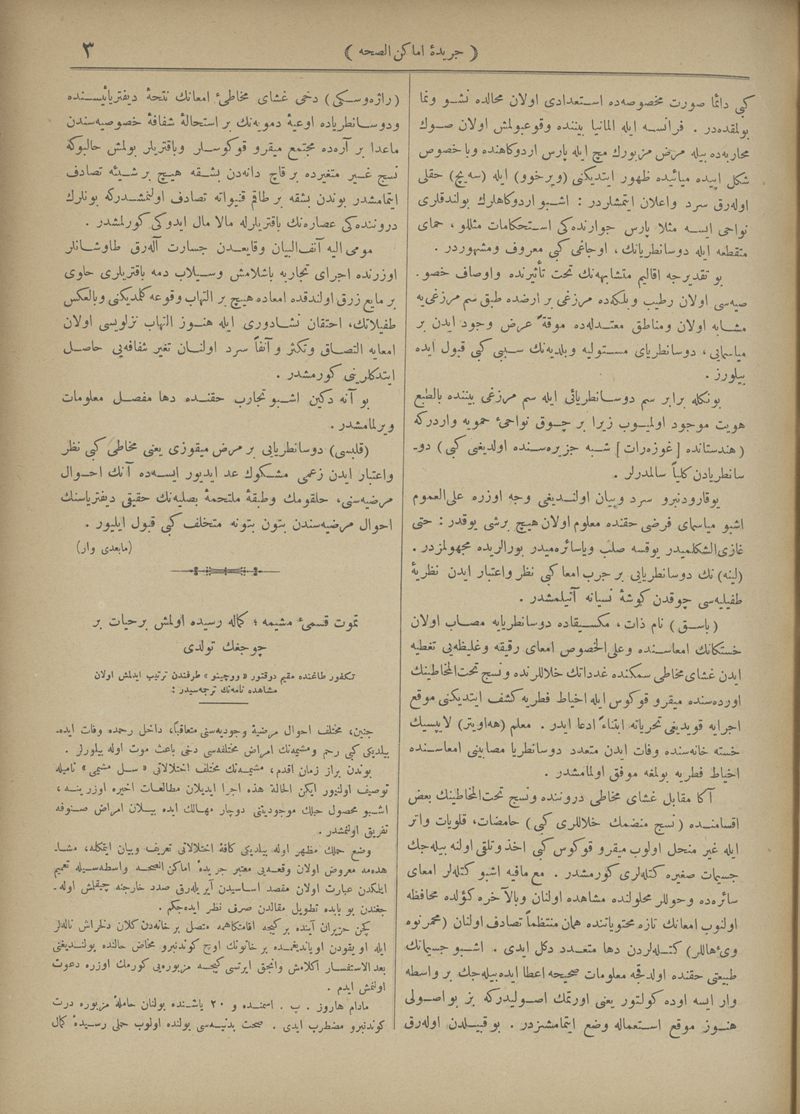 ﴿ جريدهٔ اماكن الصحه ﴾
٣
كبی دائما صورت مخصوصه‌ده استعدادی اولان محالده نشو ونما
بولمقده‌در . فرانسه ایله المانیا بیننده وقوعبولمش اولان صوك
محاربه‌ده بیله مرض مزبورك مچ ایله پارس اردوكاهنده وباخصوص
شكل ایپیده میائیده ظهور ایتدیكنی (ویرخوو) ایله (سه‌یچ) حقلی
اوله‌رق سرد واعلان ایتمشاردر : اشبو اردوكاهلرك بولندقلری
نواحی ایسه مثلا پارس جوارنده‌كی استحكامات مثللو ، حمای
متقطعه ایله دوسانطریانك ، اوجاغی كبی معروف ومشهوردر .
بو تقدیرجه اقالیم متشابهه‌نك تحت تأثیرنده واوصاف خصو.
صیه‌سی اولان رطیب وبلكه‌ده مرزغی بر ارضده طبق سم مرزغی‌یه
مشابه اولان ومناطق معتدله‌ده موقةً عرض وجود ایدن بر
میاسمایی ، دوسانطریای مستولیه وبلدیه‌نك سببی كبی قبول ایده
بیلورز .
بونكله برابر سم دوسانطریائی ایله سم مرزغی بیننده بالطبع
هویت موجود اولمیوب زیرا بر چوق نواحیٔ حمویه واردركه
(هندستانده [غوزه‌رات] شبه جزیره‌سنده اولدیغی كبی) دو-
سانطریادن كلیاً سالمدرلر .
یوقارودنبرو سرد وبیان اولندیغی وجه اوزره علی‌العموم
اشبو میاسمای فرضی حقنده معلوم اولان هیچ برشی یوقدر : حتی
غازی‌الشكلمیدر یوقسه صلب ویاسائره‌میدر بورالریده مجهولمزدر .
(لینه) نك دوسانطریایی بر جرب امعا كبی نظر واعتبار ایدن نظریهٔ
طفیلیه‌سی چوقدن كوشهٔ نسیانه آتیلمشدر .
(باسق) نام ذات ، مكسیقاده دوسانطریایه مصاب اولان
خستكانك امعاسنده وعلی‌الخصوص امعای رقیقه وغلیظه‌یی تغطیه
ایدن غشای مخاطی سمكنده غدداتك خلاللرنده ونسج تحت‌المخاطینك
اورده‌سنده میقرو قوكوس ایله اخیاط فطریه كشف ایتدیكنی موقع
اجرایه قویدیغی تحریاته ابتناءً ادعا ایدر . معلم (هه‌اوینر) لایپسیك
خسته خانه‌سنده وفات ایدن متعدد دوسانطریا مصابینی امعاسنده
اخیاط فطریه بولمغه موفق اولمامشدر .
آكا مقابل غشای مخاطی دروننده ونسج تحت‌المخاطینك بعض
اقسامنده (نسج منضمك خلاللری كبی) حامضات ، قلویات واتر
ایله غیر منحل اولوب میقرو قوكوس كبی اخذ وتلقی اولنه بیله‌جك
جسیمات صغیره كتله‌لری كورمشدر . مع مافیه اشبو كتله‌لر امعای
سائره‌ده وحوللر محلولنده مشاهده اولنان وبالآخره كؤلده محافظه
اولنوب امعانك تازه محتویاتنده همان منتظماً تصادف اولنان (محمرنوه
ویٔ‌هاللر) كتله‌لردن دها متعدد دكل ایدی . اشبو جسیماتك
طبیعتی حقنده اولدقجه معلومات صحیحه اعطا ایده‌بیله‌جك بر واسطه
وار ایسه اوده كولتور یعنی اورتمك اصولیدركه بز بواصولی
هنوز موقع استعماله وضع ایتمامشزدر . بو قبیلدن اوله‌رق
(راژه‌وسكی) دخی غشای مخاطیٔ امعانك نتجهٔ دیفتریائیسنده
ودوسانطریاده اوعیهٔ دمویه‌نك بر استحالهٔ شفافهٔ خصوصیه‌سندن
ماعدا بر آره‌ده مجتمع میقرو قوكوسلر وباقتریلر بولمش حالبوكه
نسج غیر متغیرده بر قاچ دانه‌دن بشقه هیچ بر شیئه تصادف
ایتمامشدر بوندن بشقه بر طاقم قنیواته تصادف اولنمشدركه بونلرك
دروننده‌كی عصاره‌نك باقتریلرله مالا مال ایدوكی كورلمشدر .
مومی الیه آنف‌البیان وقایعدن جسارت آله‌رق طاوشانلر
اوزرنده اجرای تجاربه باشلامش وسیلاب دمه باقتریلری حاوی
بر مایع زرق اولندقده امعاده هیچ بر التهاب وقوعه كلمدیكنی وبالعكس
طفیلاتك ، احتقان نشادوری ایله هنوز التهاب نزلویسی اولان
امعایه التصاق وتكثر وآنفاً سرد اولنان تغیر شفافه‌یی حاصل
ایتدكلرینی كورمشدر .
بو آنه دكین اشبو تجارب حقنده دها مفصل معلومات
ویرلمامشدر .
(قلبسی) دوسانطریایی بر مرض میقوزی یعنی مخاطی كبی نظر
واعتبار ایدن زعمی مشكوك عد ایدیور ایسه‌ده آنك احوال
مرضیه‌سنی ، حلقومك وطبقهٔ ملتحمهٔ بصلیه‌نك حقیقی دیفتریاسنك
احوال مرضیه‌سندن بتون بتونه متخلف كبی قبول ایلیور .
(مابعدی وار)
تموت قسمیٔ مشیمه ؛ كاله رسیده اولمش برحیات بر
چوجغك تولدی
تكفور طاغنده مقیم دوقتور « وورچینو » طرفندن ترتیب ایدلمش اولان
مشاهده نامه‌نك ترجمه‌سیدر :
جنین ، مختلف احوال مرضیهٔ وجودیه‌سنی متعاقباً ، داخل رحمده وفات ایده-
بیلدیكی كبی رحم ومشیمه‌نك امراض مختلفه‌سی دخی باعث موت اوله بیلورلر .
بوندن براز زمان اقدم ، مشیمه‌نك مختلف اختلالاتی « سل مشمی » نامیله
توصیف اولنیور ایكن الحالة هذه اجرا ایدیلان مطالعات اخیره اوزرینه ،
اشبو محصول حبلك موجودیتنی دوچار مهالك ایده بیلان امراض صنوفه
تفریق اولنمشدر .
وضع حملك مظهر اوله بیلدیكی كافهٔ اختلالاتی تعریف وبیان ایتمكله ، مشا-
هده‌مه معروض اولان وقعه‌یی معتبر جریدهٔ اماكن‌الصحه واسطه‌سیله تعمیم
ایلمكدن عبارت اولان مقصد اساسیدن آیریله‌رق صدد خارجنه چیقمش اوله-
جغندن بو بابده تطویل مقالدن صرف نظر ایده‌جكم .
كچن حزیران آینده بر كیجه اقامتكاهمه متصل بر خانه‌دن كلان دلخراش ناله‌لر
ایله اویقودن اویاندیغمده بر خاتونك اوچ كوندنبرو مخاض حالنده بولندیغنی
بعدالاستفسار اكلامش وانجق ایرتسی كیجه مزبوره‌یی كورمك اوزره دعوت
اولنمش ایدم .
مادام هاروز . ب . اسمنده و ٢٠ یاشنده بولنان حاملهٔ مزبوره درت
كوندنبرو مضطرب ایدی . صحت بدنیه‌سی یولنده اولوب حملی رسیدهٔ كمال